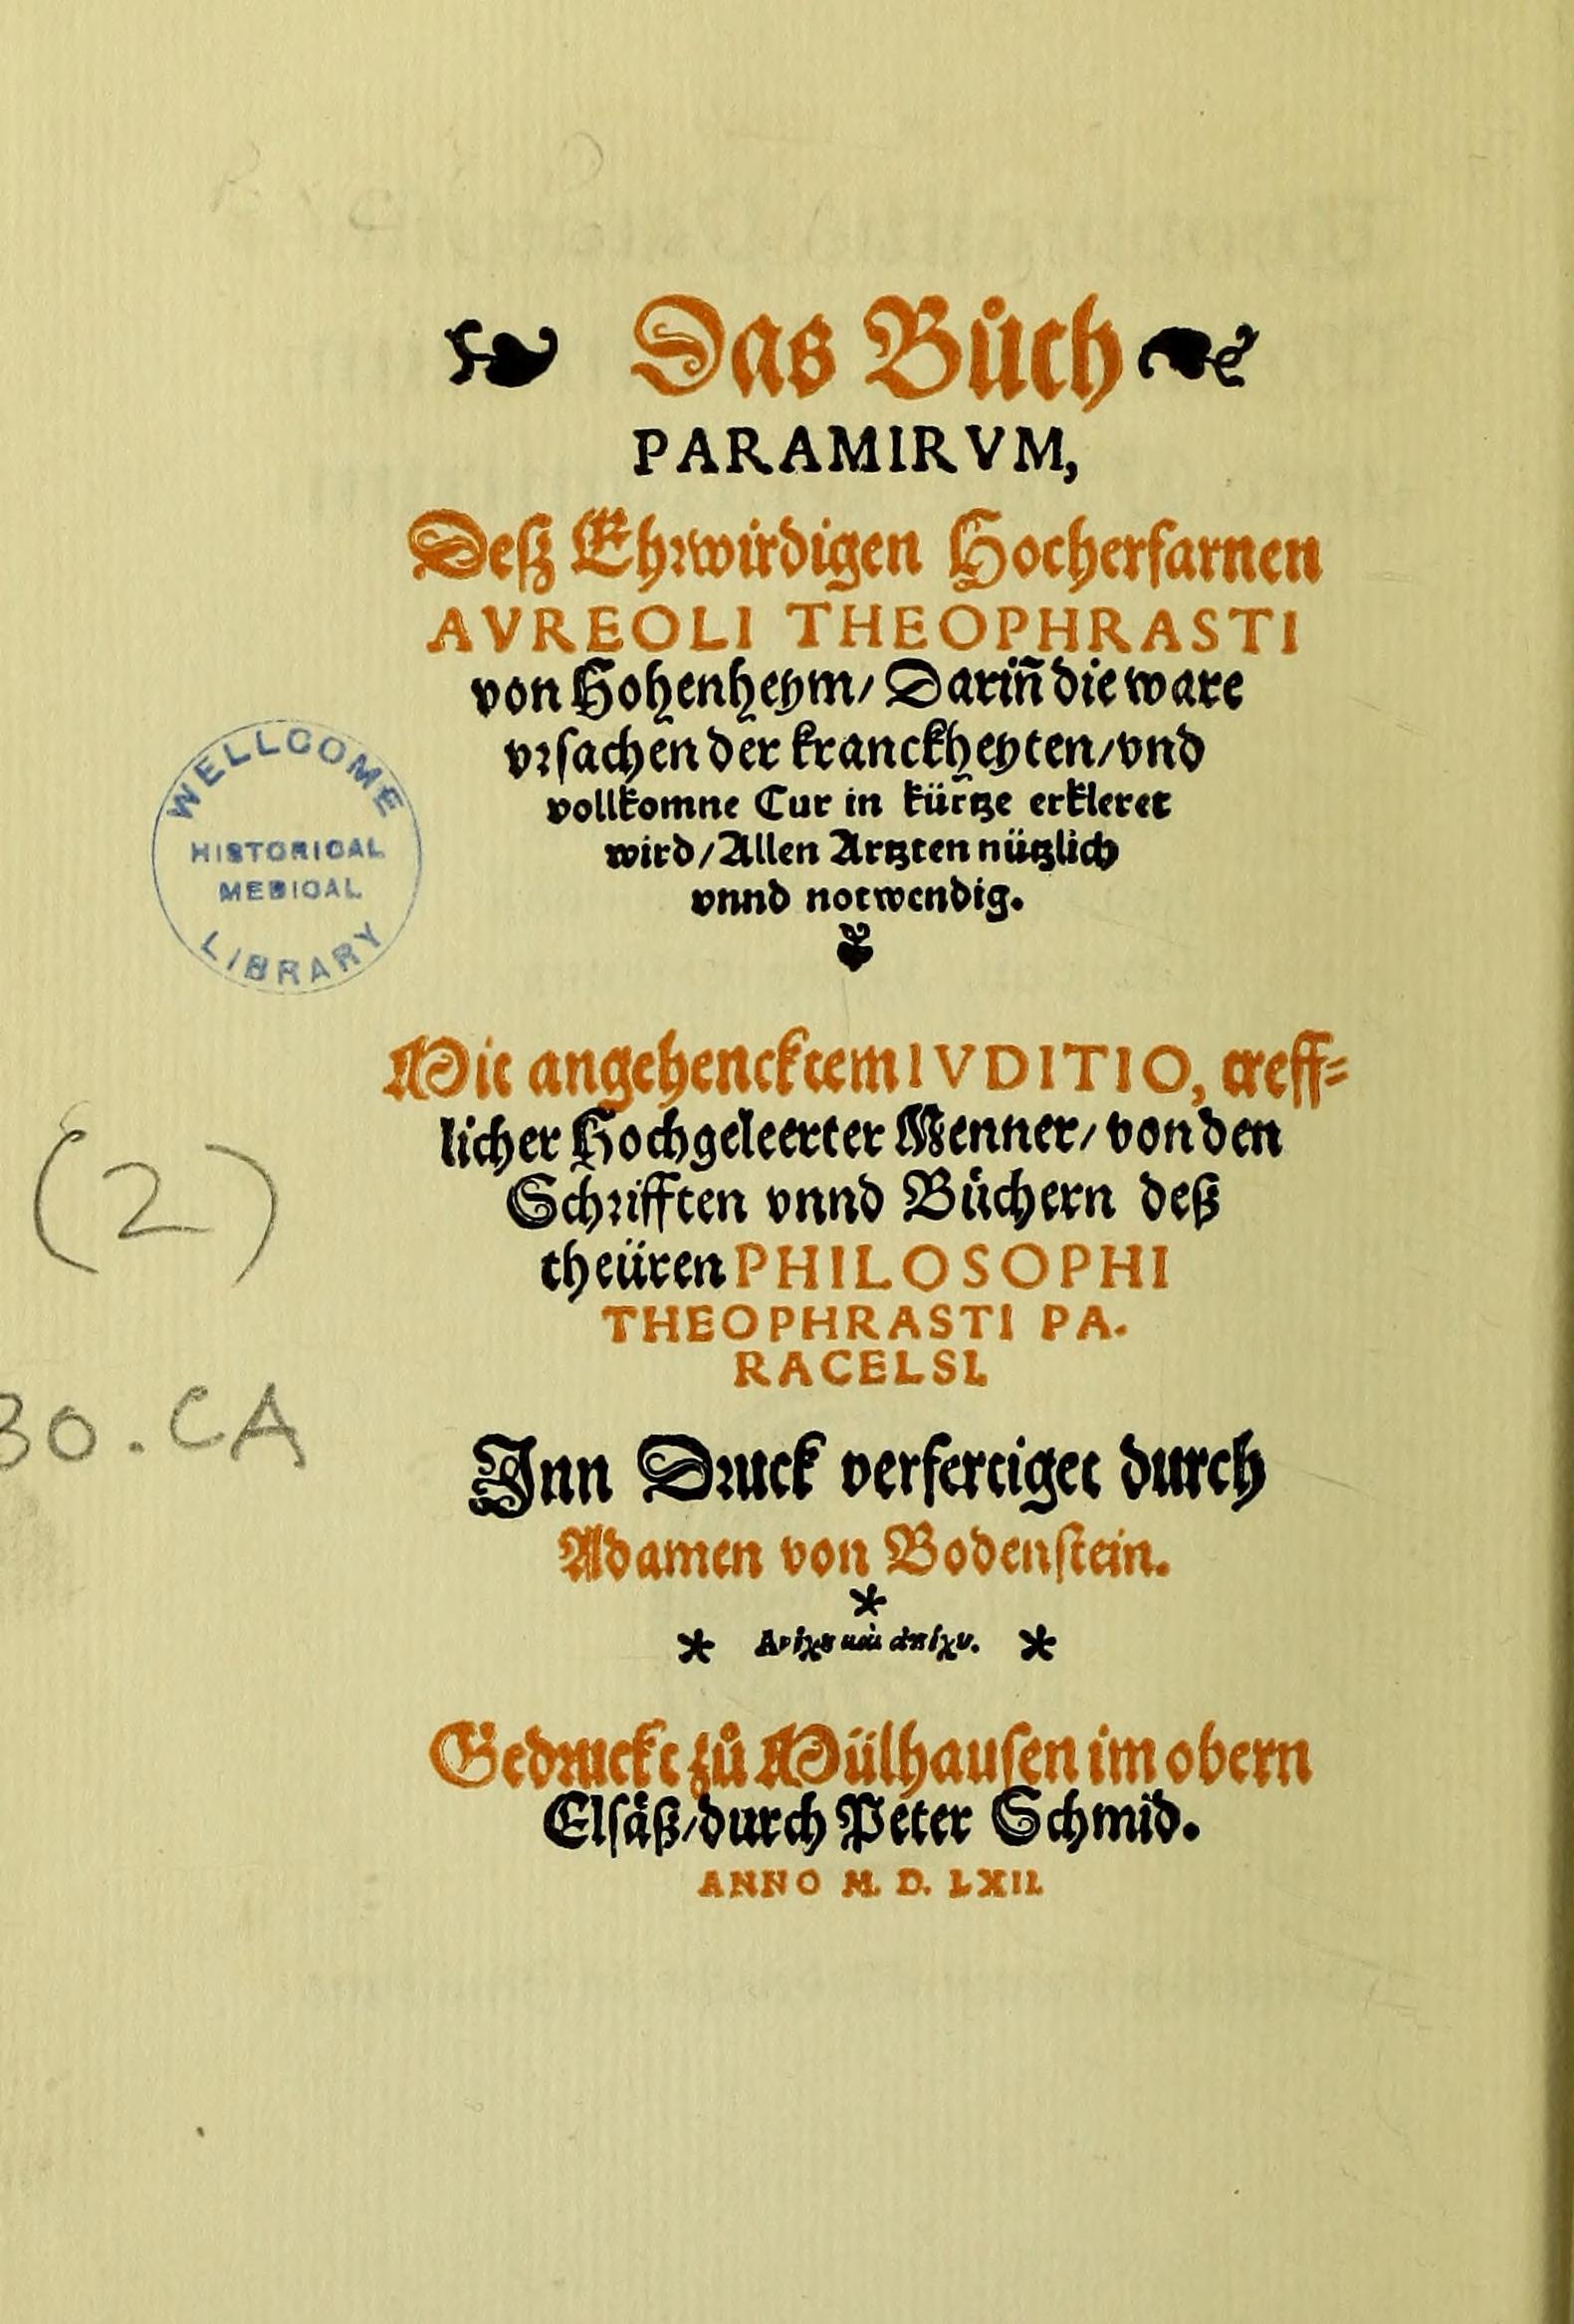 Das Bůch
PARAMIRVM,
Deß Ehrwirdigen Hocherfarnen
AVREOLI THEOPHRASTI
von Hohenheym/ Dariñ die ware
vrsachen der kranckheyten/vnd
vollkomne Cur in kürtze erkleret
wird/Allen Artzten nützlich
vnnd notwendig.
WELLCOME
HISTORICAL
MEDICAL
LIBRARY
Mit angehencktem IVDITIO, treff=
licher Hochgeleerter Menner/ von den
Schrifften vnnd Bůchern deß
theüren PHILOSOPHI
THEOPHRASTI PA-
RACELSI.
(2)
30.CA
Inn Druck verfertiget durch
Adamen von Bodenstein.
* 
* *
Gedruckt zů Mülhausen im obern
Elsäß/durch Peter Schmid.
ANNO M. D. LXII.